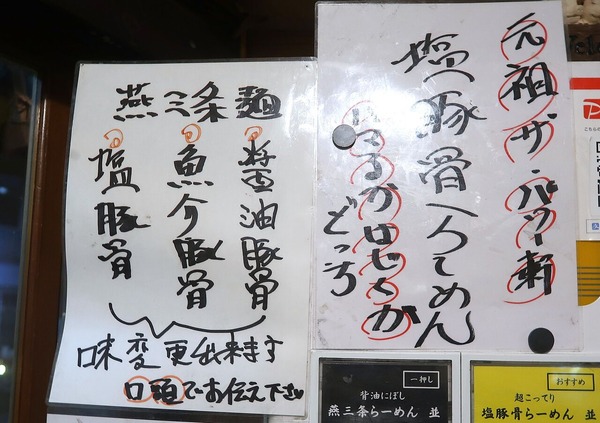 燕三条麺
醤油豚骨
魚介豚骨
塩豚骨
味変更出来ます
口頭でお伝え下さい
元祖ザ・パワー軒
塩へ豚骨へんてめん
どっち
一押し
背油にぼし
燕三条らーめん 並
おすすめ
超こってり
塩豚骨らーめん 並